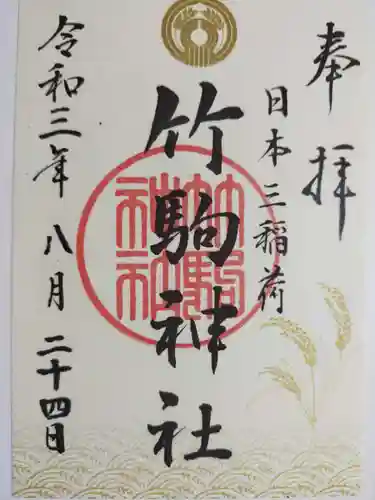 奉拝
日本三稲荷
竹駒神社
竹駒
神社
令和三年八月二十四日